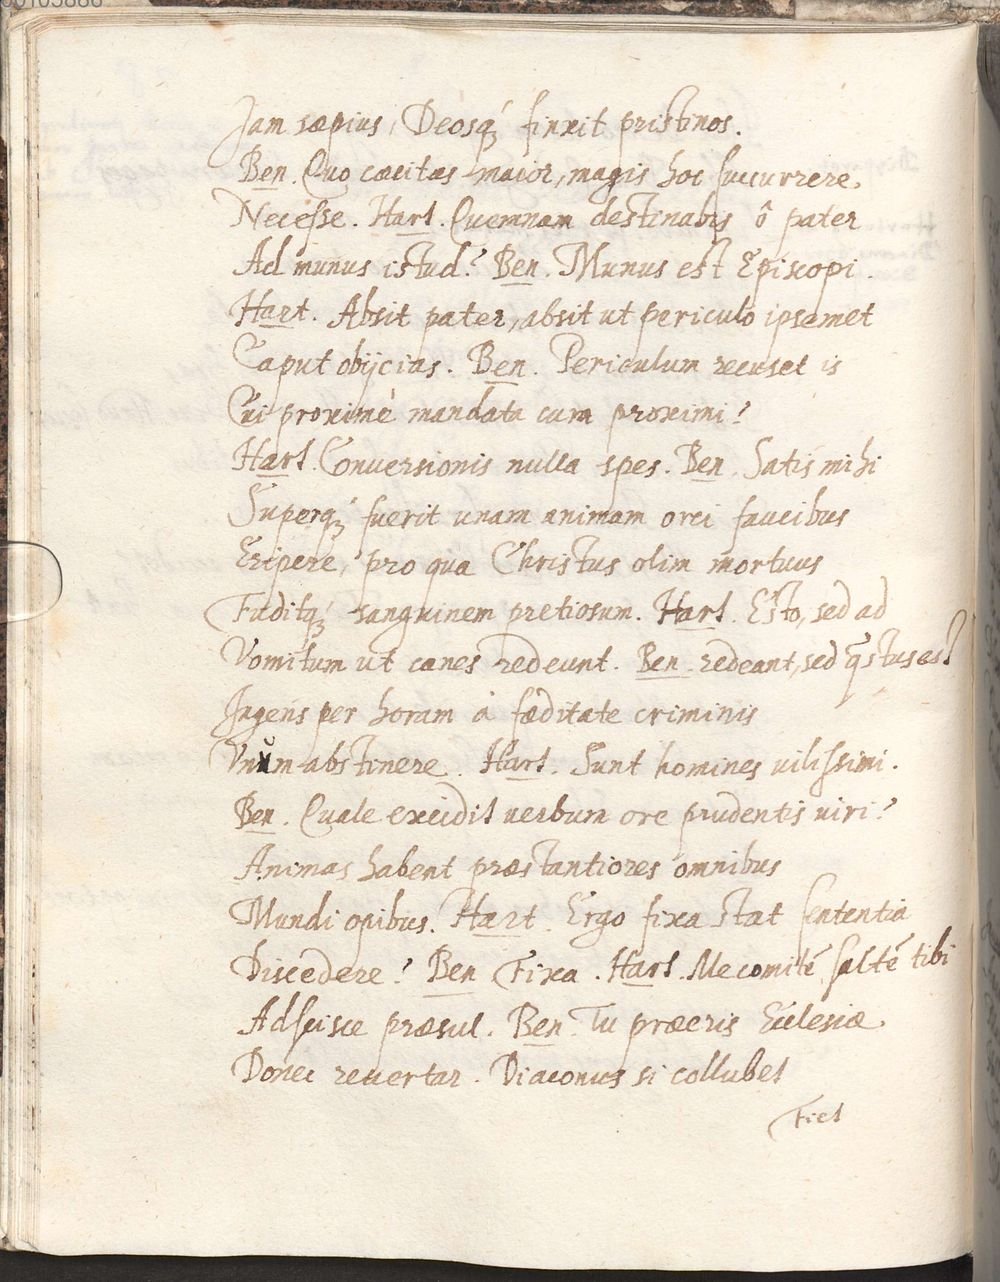 Jam sæpius, Deosq́ꝫ finxit pristinos.
Ben. Quo cæcitas maior, magis hoc succurrere
Necesse. Hart. Quemnam destinabis ô pater
Ad munus istud? Ben. Munus est Episcopi.
Hart. Absit pater, absit ut periculo ipsemet
Caput obijcias. Ben. Periculum recuset is
Cui proximè mandata cura proximi?
Hart. Conuersionis nulla spes. Ben. Satis mihi
Superq́ꝫ fuerit unam animam orci faucibus
Eripere, pro qua Christus olim mortuus
Fuditq́ꝫ sanguinem pretiosum. Hart. Esto, sed ad
Vomitum ut canes redeunt. Ben. redeant, sed q̃stus est
Ingens per horam à fæditate criminis
Vnum abstinere. Hart. Sunt homines uilissimi.
Ben. Quale excidit uerbum ore prudentis uiri?
Animas habent præstantiores omnibus
Mundi opibus. Hart. Ergo fixa stat sententia
Discedere? Ben Fixa. Hart. Me comitē saltē tibi
Adscisce præsul. Ben. Tu præeris Ecclesiæ
Donec reuertar. Diaconus si collubet
Fiet